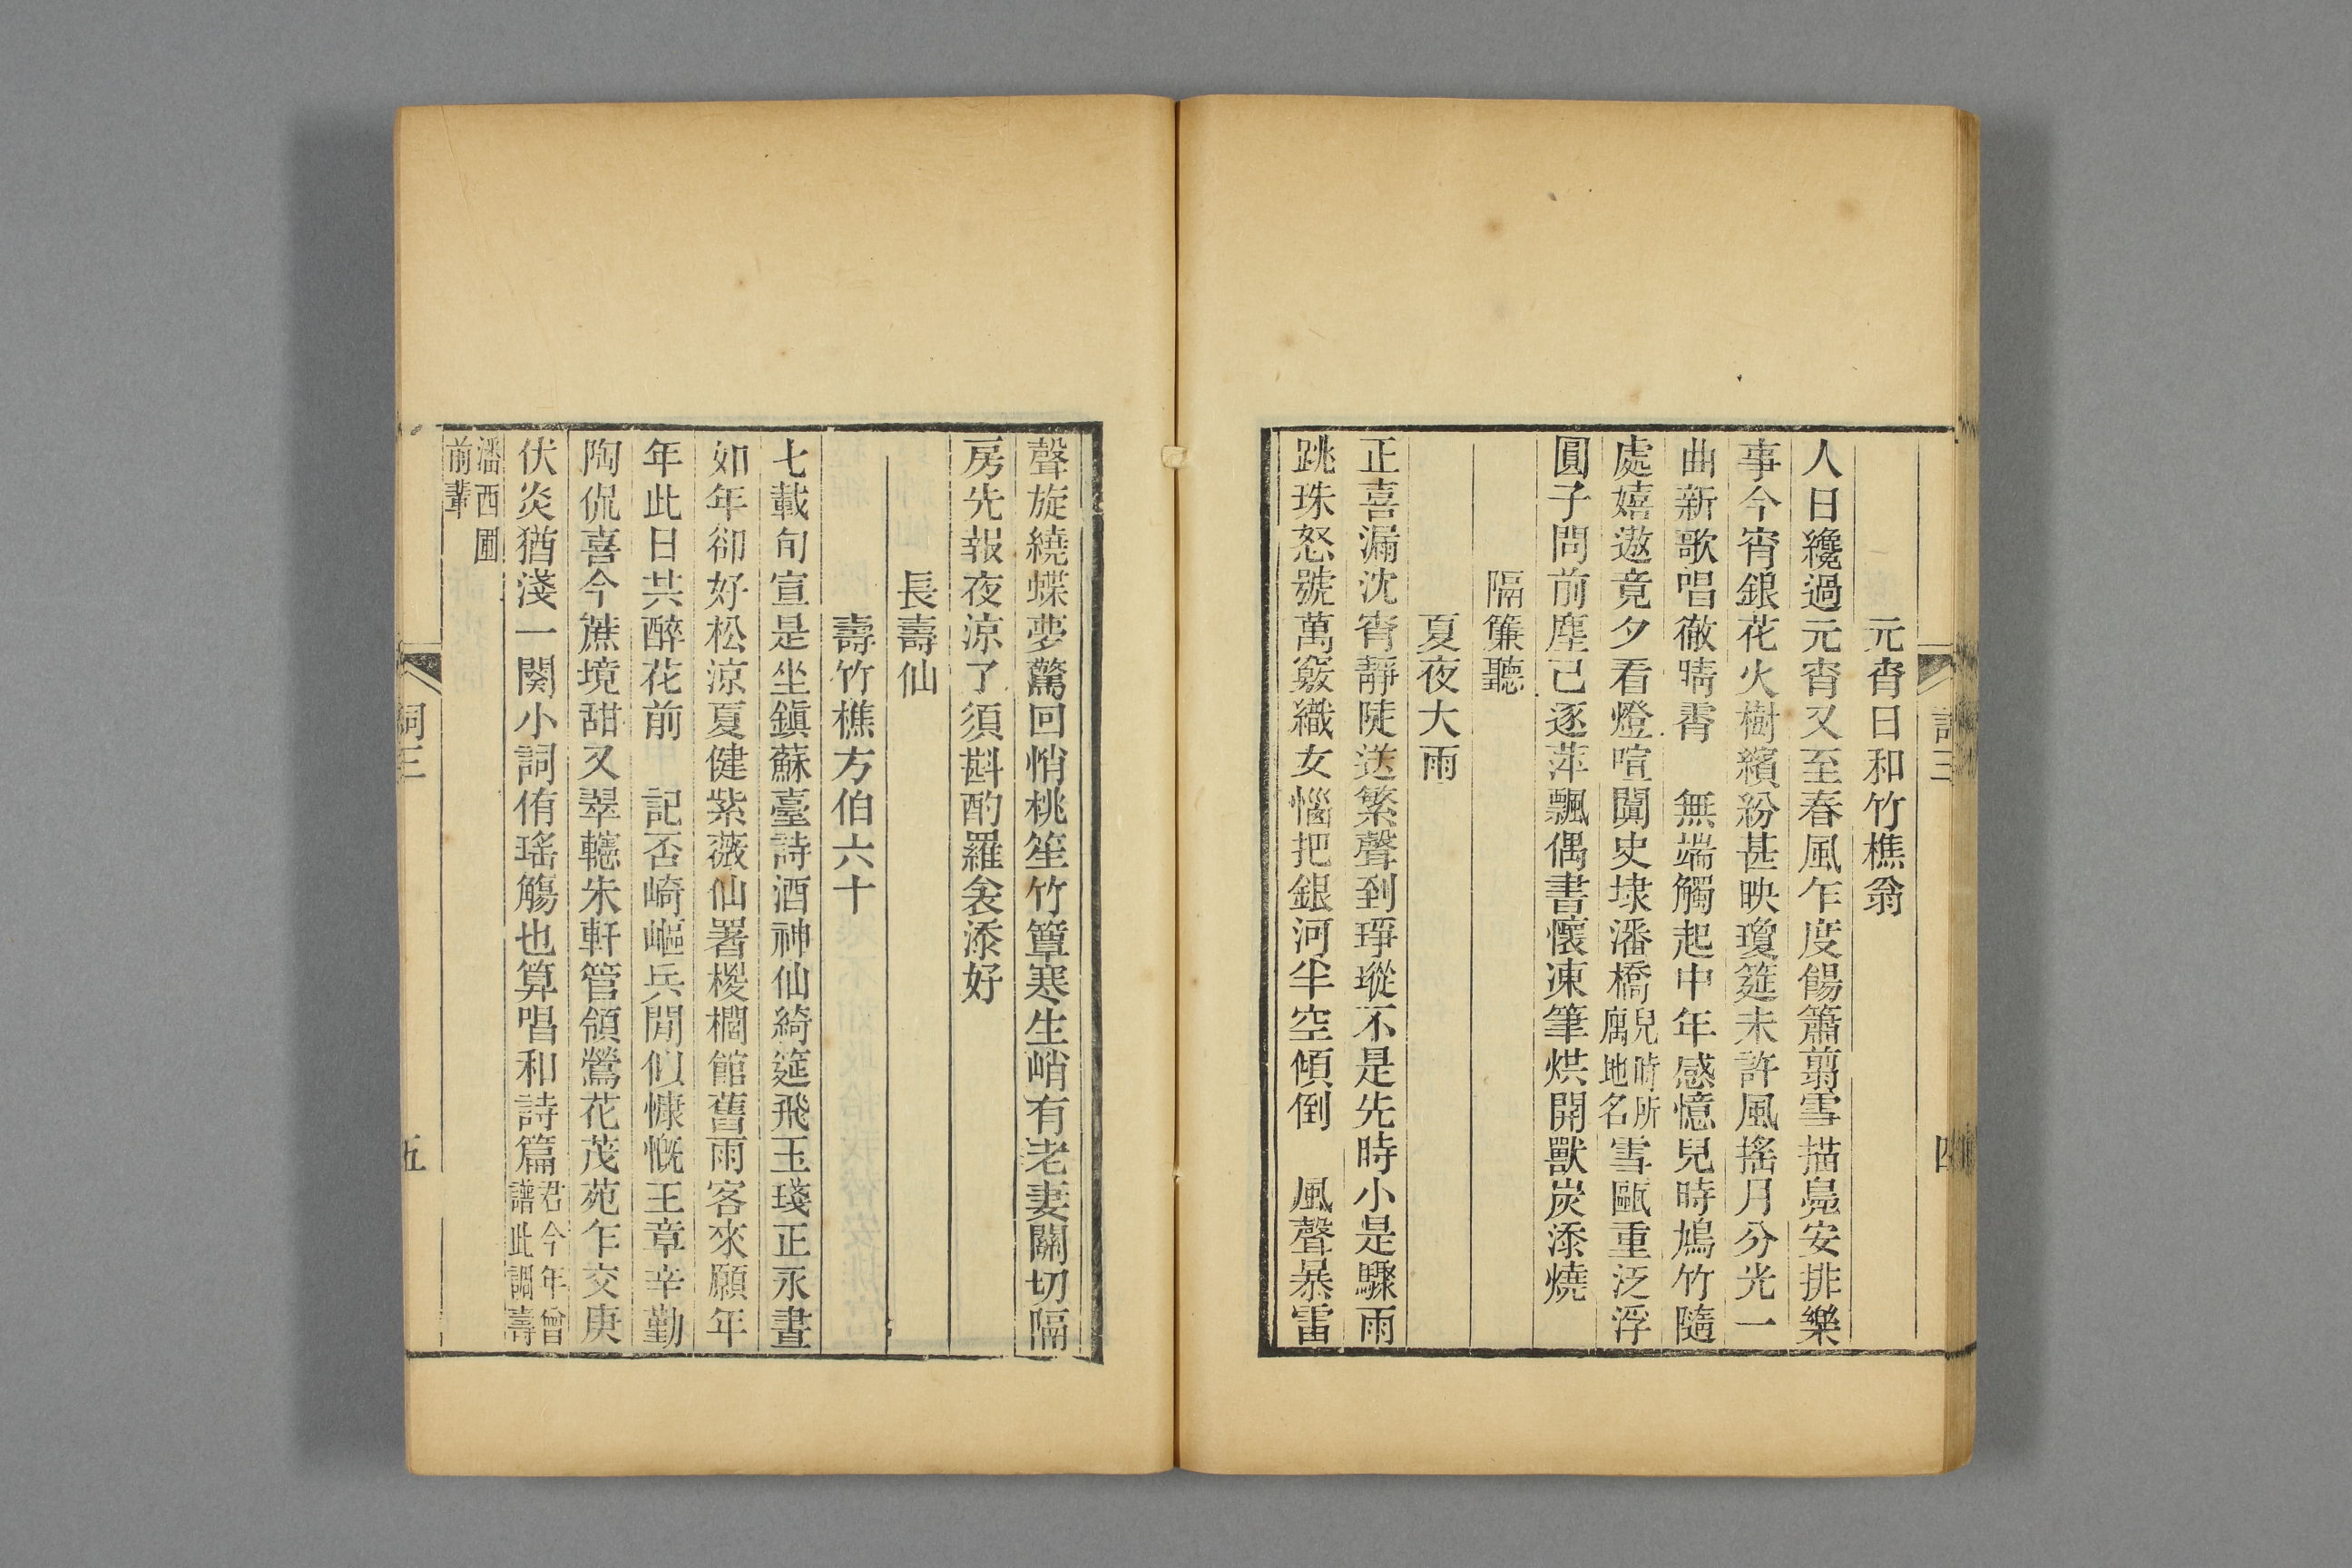 詞三
四
元宵日和竹樵翁
人日纔過元宵又至春風乍度餳簫翦雪描凫安排樂
事今宵銀花火樹繽紛甚映瓊筵未許風搖月分光一
曲新歌唱徹晴霄　無端觸起中年感憶兒時鳩竹隨
處嬉遨竟夕看燈喧闐史埭潘橋兒時所寓地名雪甌重泛浮
圓子問前塵已逐萍飄偶書懷凍筆烘開獸炭添燒
隔簾聽
夏夜大雨
正喜漏沈宵靜陡送繁聲到琤瑽不是先時小是驟雨
跳珠怒號萬竅織女惱把銀河半空傾倒　風聲暴雷
聲旋繞蝶夢驚回悄桃笙竹簟寒生峭有老妻關切隔
房先報夜涼了須斟酌羅衾添好
長壽仙
壽竹樵方伯六十
七載旬宣是坐鎭蘇臺詩酒神仙綺筵飛玉琖正永晝
如年卻好松涼夏健紫薇仙署椶櫚館舊雨客來願年
年此日共醉花前　記否崎嶇兵閒似慷慨王章辛勤
陶侃喜今蔗境甜又翠轣朱軒管領鶯花茂苑乍交庚
伏炎猶淺一闋小詞侑瑤觴也算唱和詩篇君今年曾譜此調壽
潘西圃前輩
詞三
五